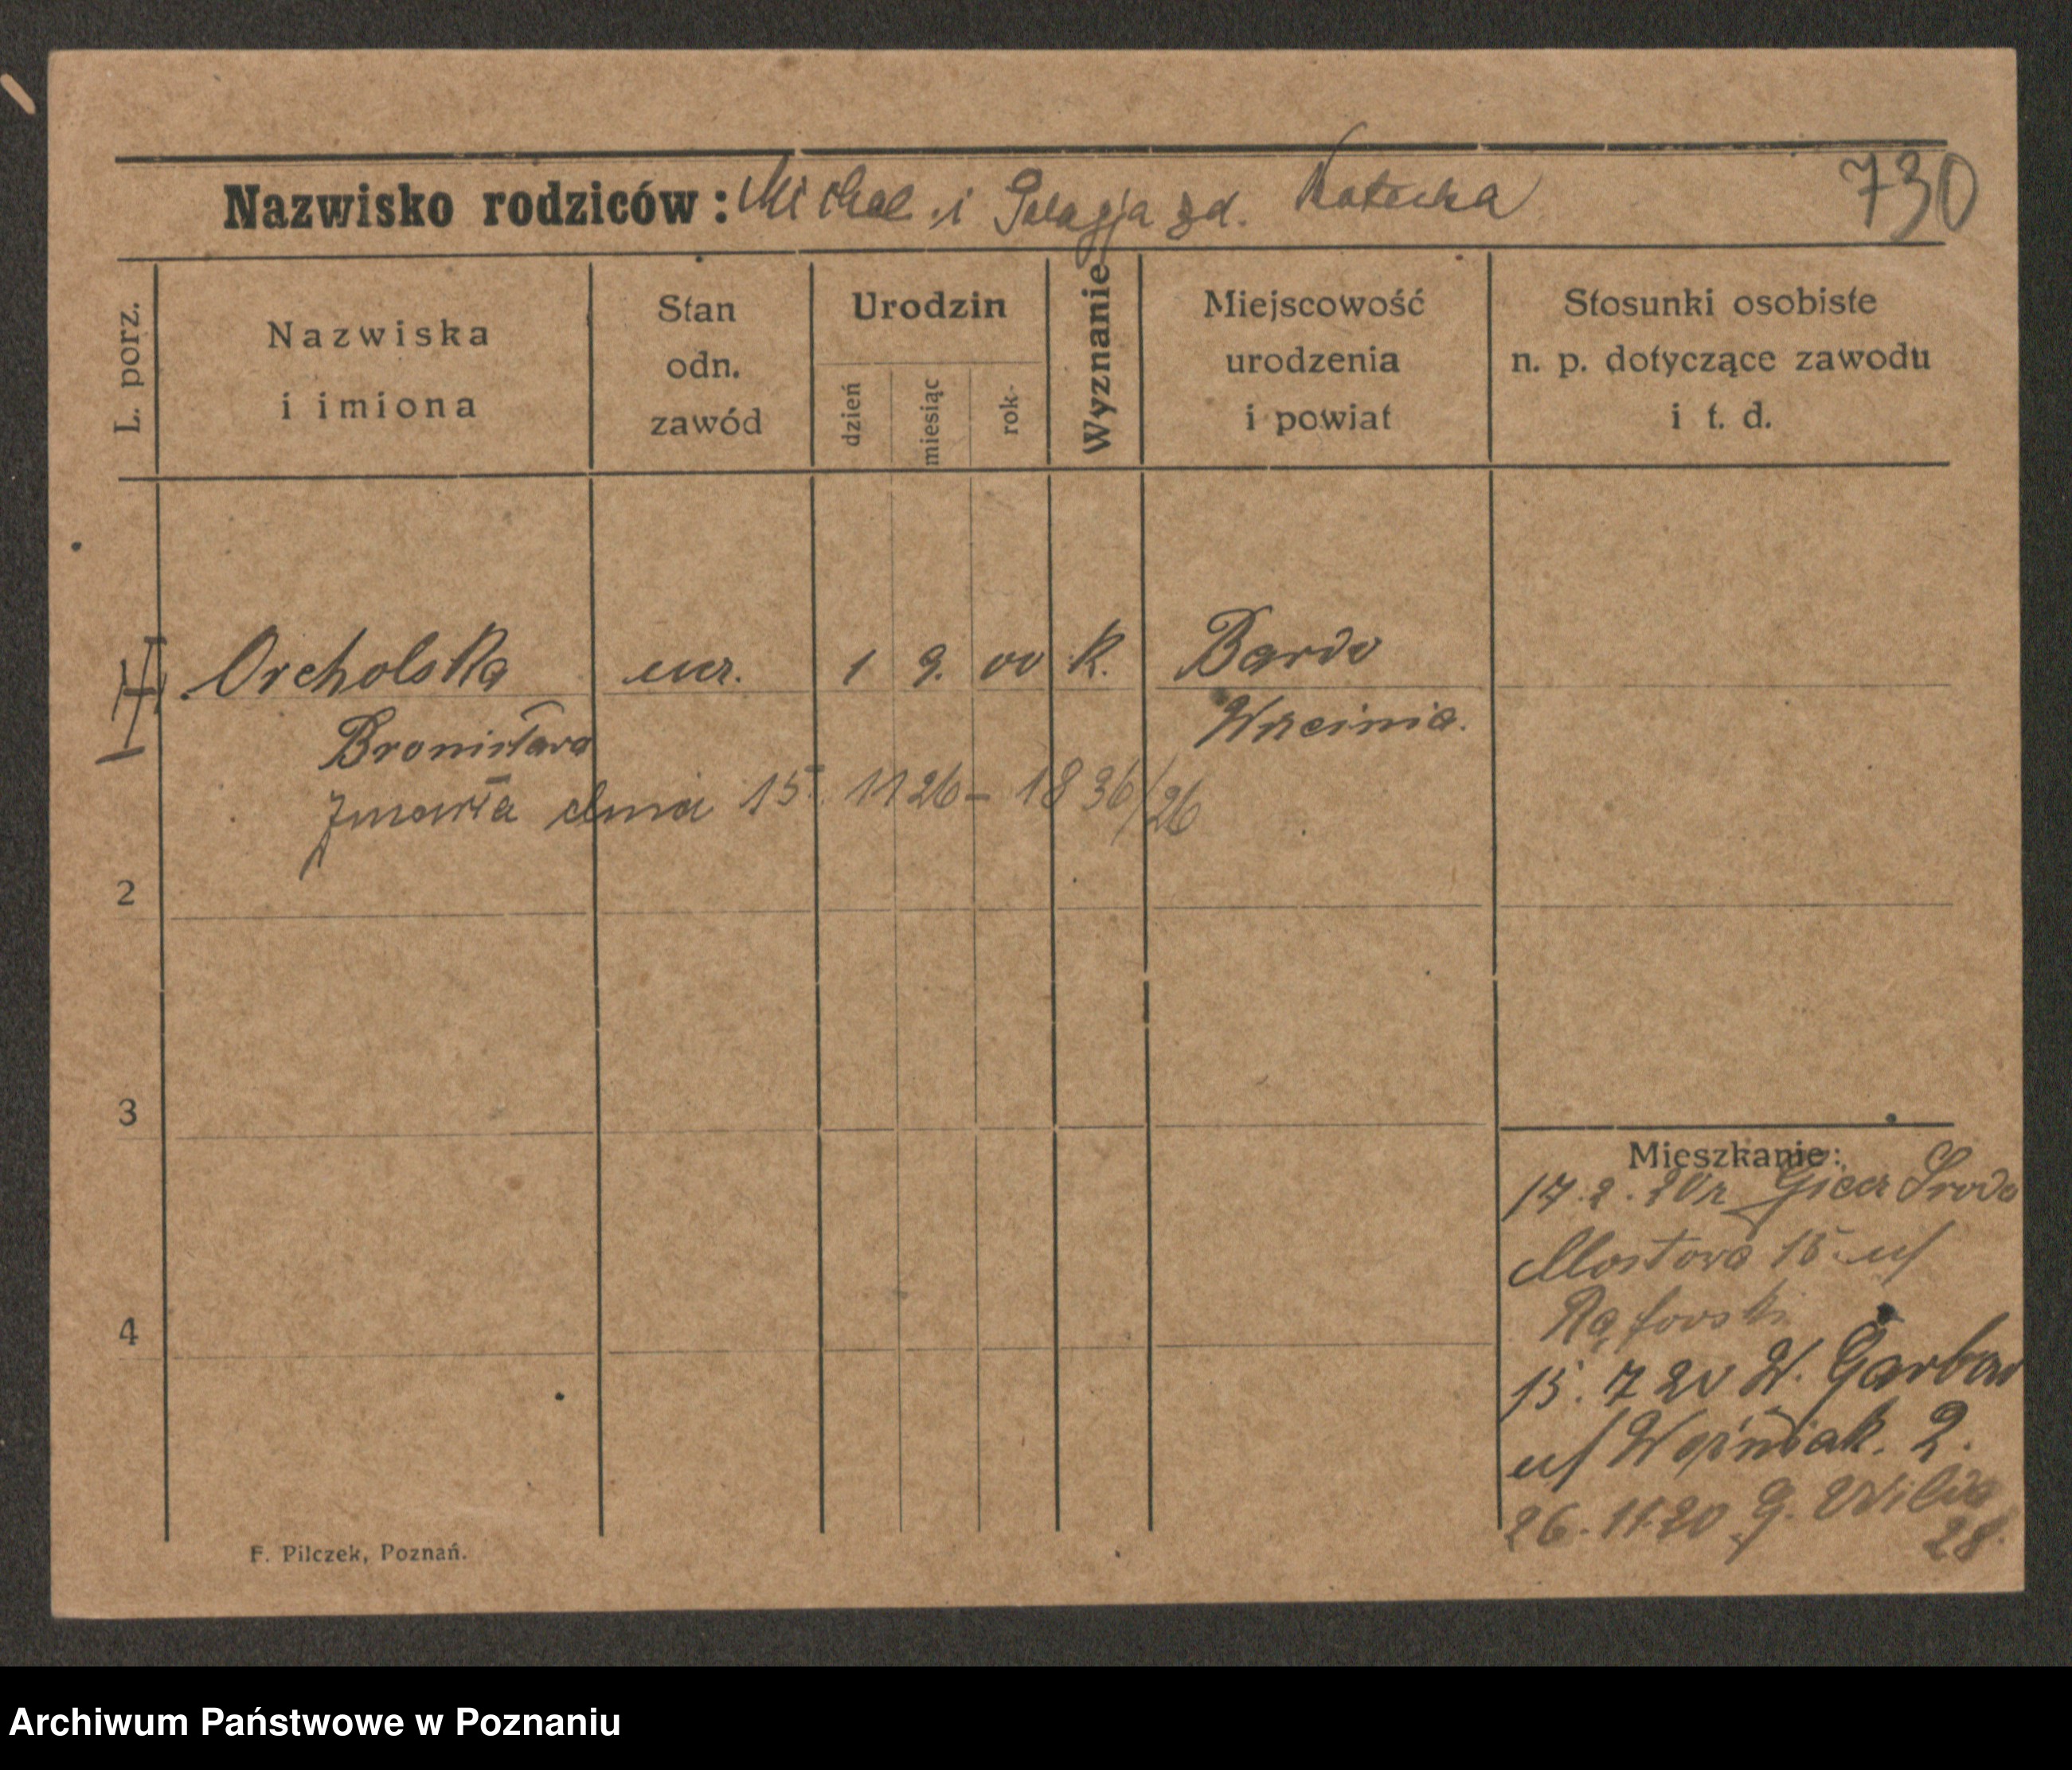 Nazwisko rodziców: Michal i Pelagja zd. Ratecka 730
L. porz.
Nazwiska
i imiona
Stan
odn.
zawód
Urodzin
dzień
miesiąc
rok-
Wyznanie
Miejscowość
urodzenia
i powiat
Stosunki osobiste
n. p. dotyczące zawodu
i t. d.
Orcholska 1 9. 00 K. Bardo
Bronisława
zmarła dnia 15. 11 26 - 1836/26
2
3
4
Mieszkanie:
17. 2. 20 r Środa
Mostowa 15 u/
15. 7 20 W. Garbar
u/ Woźniak. 2.
26. 11 20 G. Wilda
28.
F. Pilczek, Poznań.
Archiwum Państwowe w Poznaniu